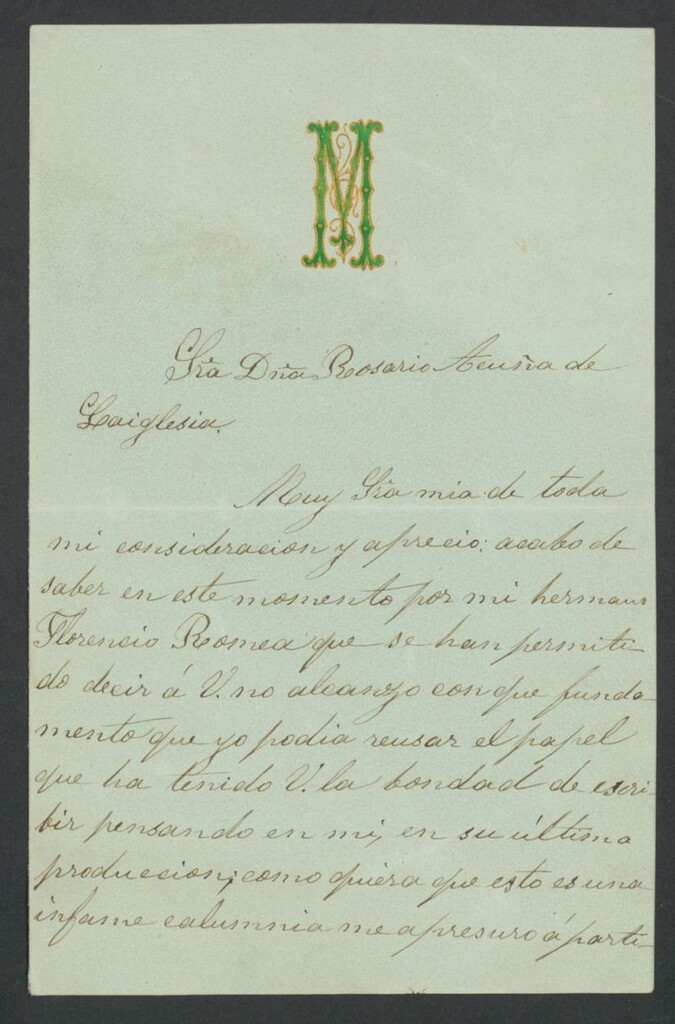 M
Sra Dña Rosario Acuña de
Laiglesia.
Muy Sra mia de toda
mi consideracion y aprecio: acabo de
saber en este momento por mi hermano
Florencio Romea que se han permiti-
do decir á V. no alcanzo con que funda
mento que yo podia reusar el papel
que ha tenido V. la bondad de escri-
bir pensando en mi, en su última
produccion; como quiera que esto es una
infame calumnia me apresuro á parti-